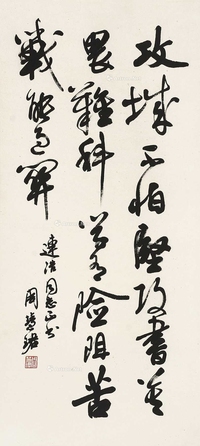 攻城不怕坚攻书莫
畏难科学有险阻苦
战能过关
连浩同志正书
周慧珺